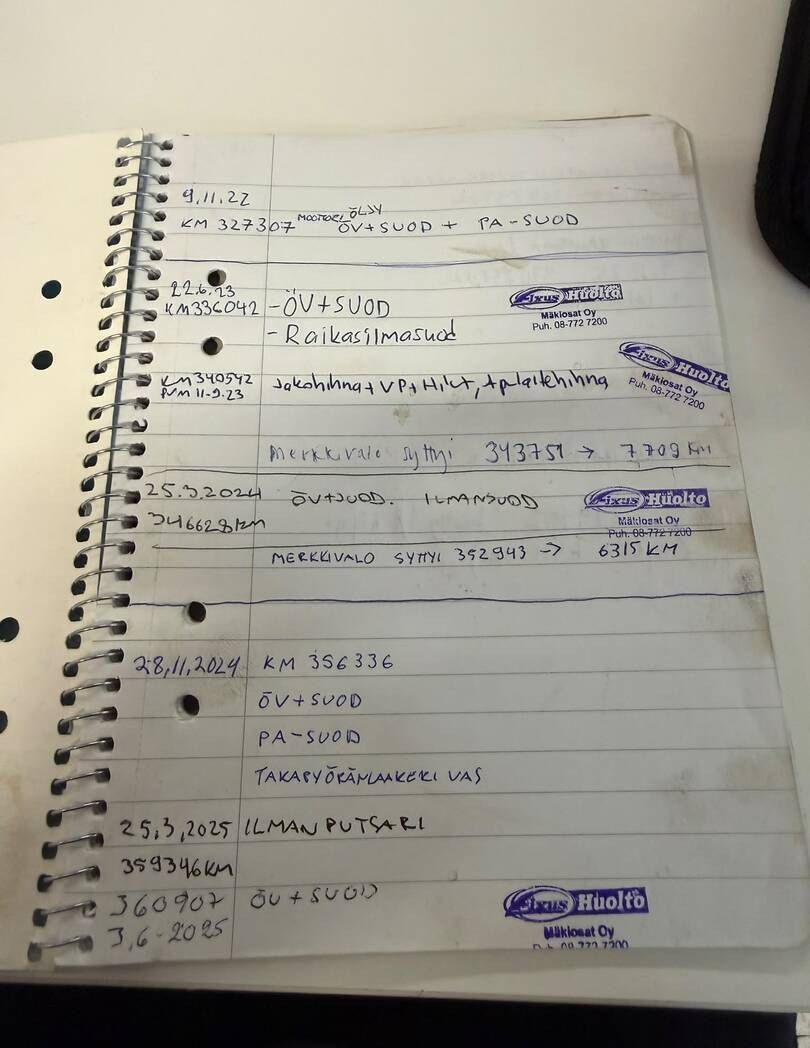 9.11.22
MOOTTORI ÖLJY
KM 327307 ÖV+SUOD + PA-SUOD
22.6.23
KM336042 -ÖV+SUOD
-Raikasilmasuod
Fixus Huolto
Mäkiosat Oy
Puh. 08-772 7200
KM340542 Jakohihna+VP+Hiht, Apulaitehihna
PVM 11-9.23
Fixus Huolto
Mäkiosat Oy
Puh. 08-772 7200
Merkkivalo syttyi 343751 → 7709 KM
25.3.2024 ÖV+SUOD. ILMANSUOD
346628KM
Fixus Huolto
Mäkiosat Oy
Puh. 08-772 7200
MERKKIVALO SYTTYI 352943 → 6315 KM
28,11,2024 KM 356336
ÖV+SUOD
PA-SUOD
TAKAPYÖRÄNLAAKERI VAS
25,3,2025 ILMANPUTSARI
359346KM
360907 ÖV+SUOD
3,6-2025
Fixus Huolto
Mäkiosat Oy
Puh. 08-772 7200